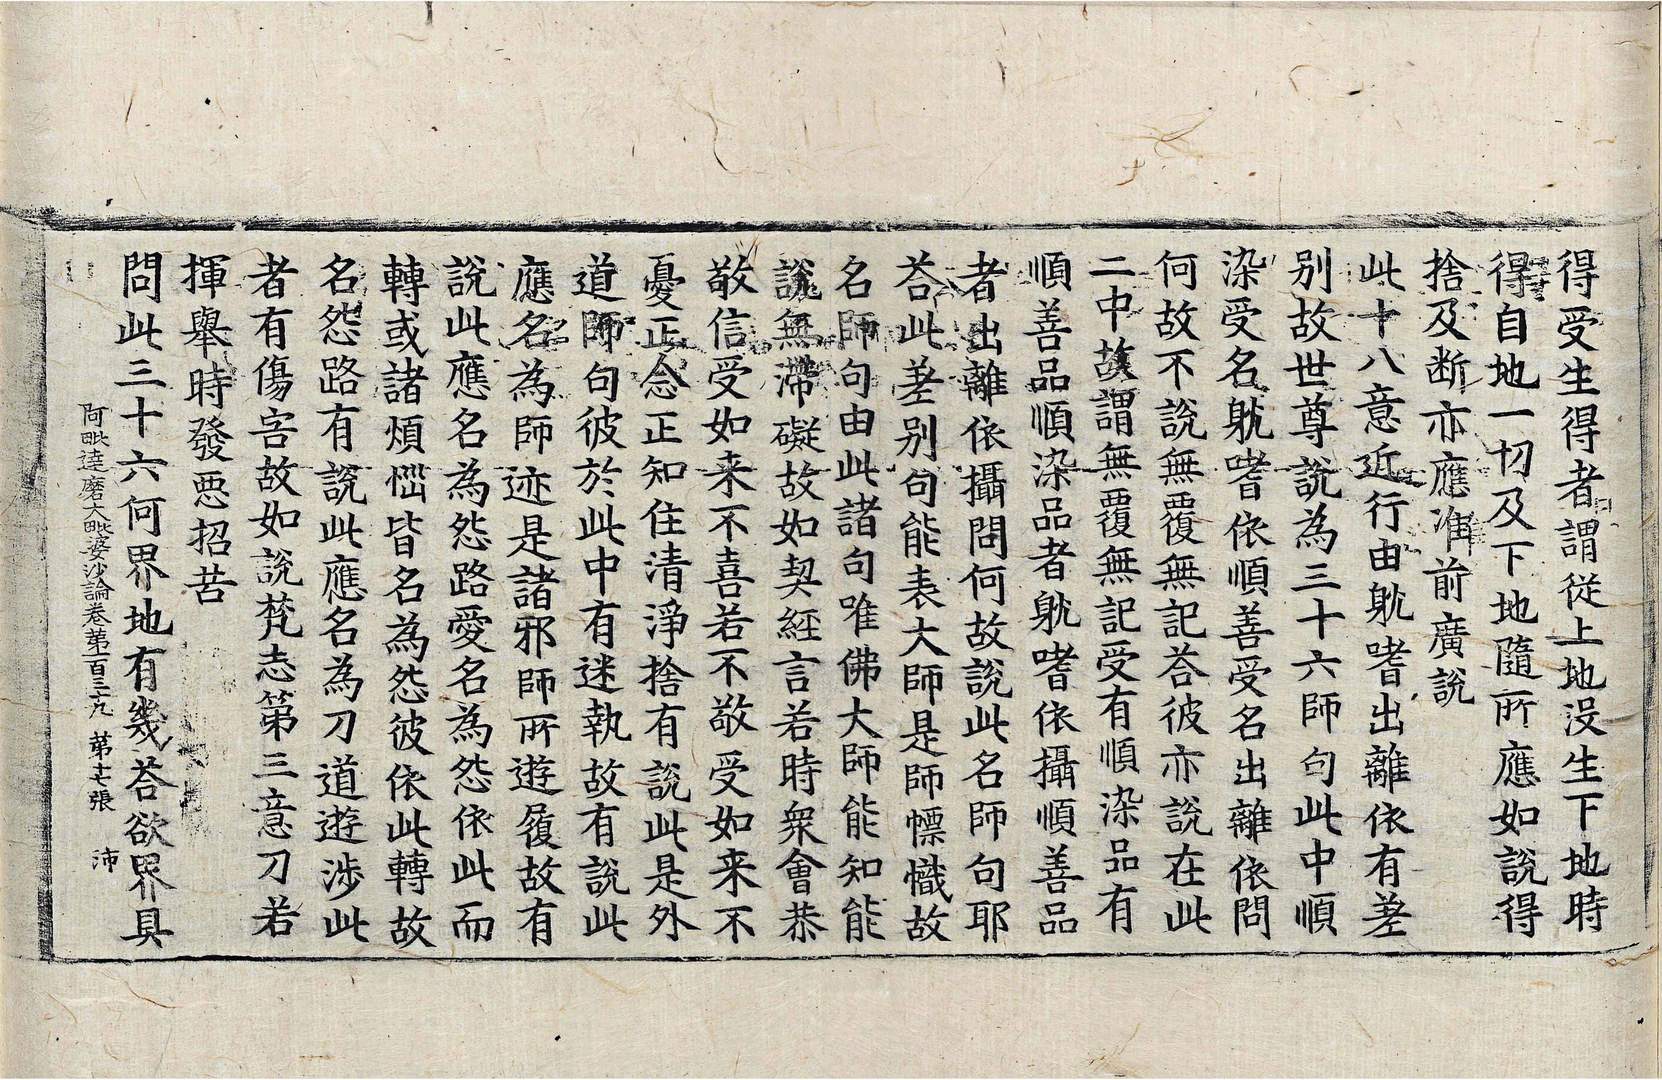 得受生得者謂從上地没生下地時
得自地一切及下地隨所應如說得
捨及断亦應准前廣說
此十八意近行由躭嗜出離依有差
別故世尊說為三十六師句此中順
染受名躭嗜依順善受名出離依問
何故不說無覆無記荅彼亦說在此
二中故謂無覆無記受有順染品有
順善品順染品者躭嗜依攝順善品
者出離依攝問何故說此名師句耶
荅此差別句能表大師是師幖幟故
名師句由此諸句唯佛大師能知能
說無滯礙故如契經言若時衆會恭
敬信受如来不喜若不敬受如来不
憂正念正知住清淨捨有說此是外
道師句彼於此中有迷執故有說此
應名為師迹是諸邪師所遊履故有
說此應名為怨路愛名為怨依此而
轉或諸煩惱皆名為怨彼依此轉故
名怨路有說此應名為刀道遊涉此
者有傷害故如說梵志第三意刀若
揮舉時發惡招苦
問此三十六何界地有幾荅欲界具
阿毗達磨大毗婆沙論卷第一百三十九 第十七張 沛